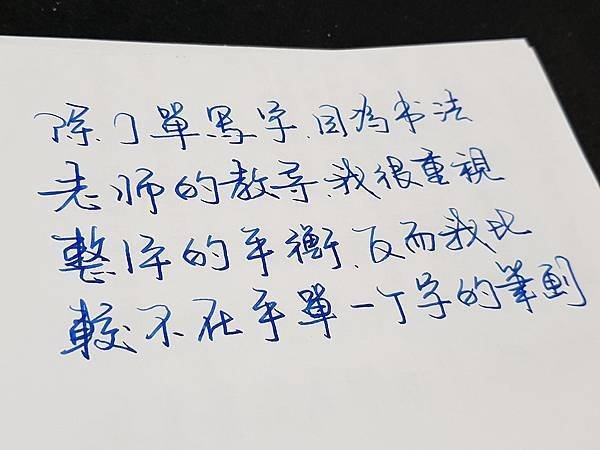 除了單寫字、因為书法
老师的教导、我很重視
整体的平衡、反而我比
較不在乎單一个字的筆劃